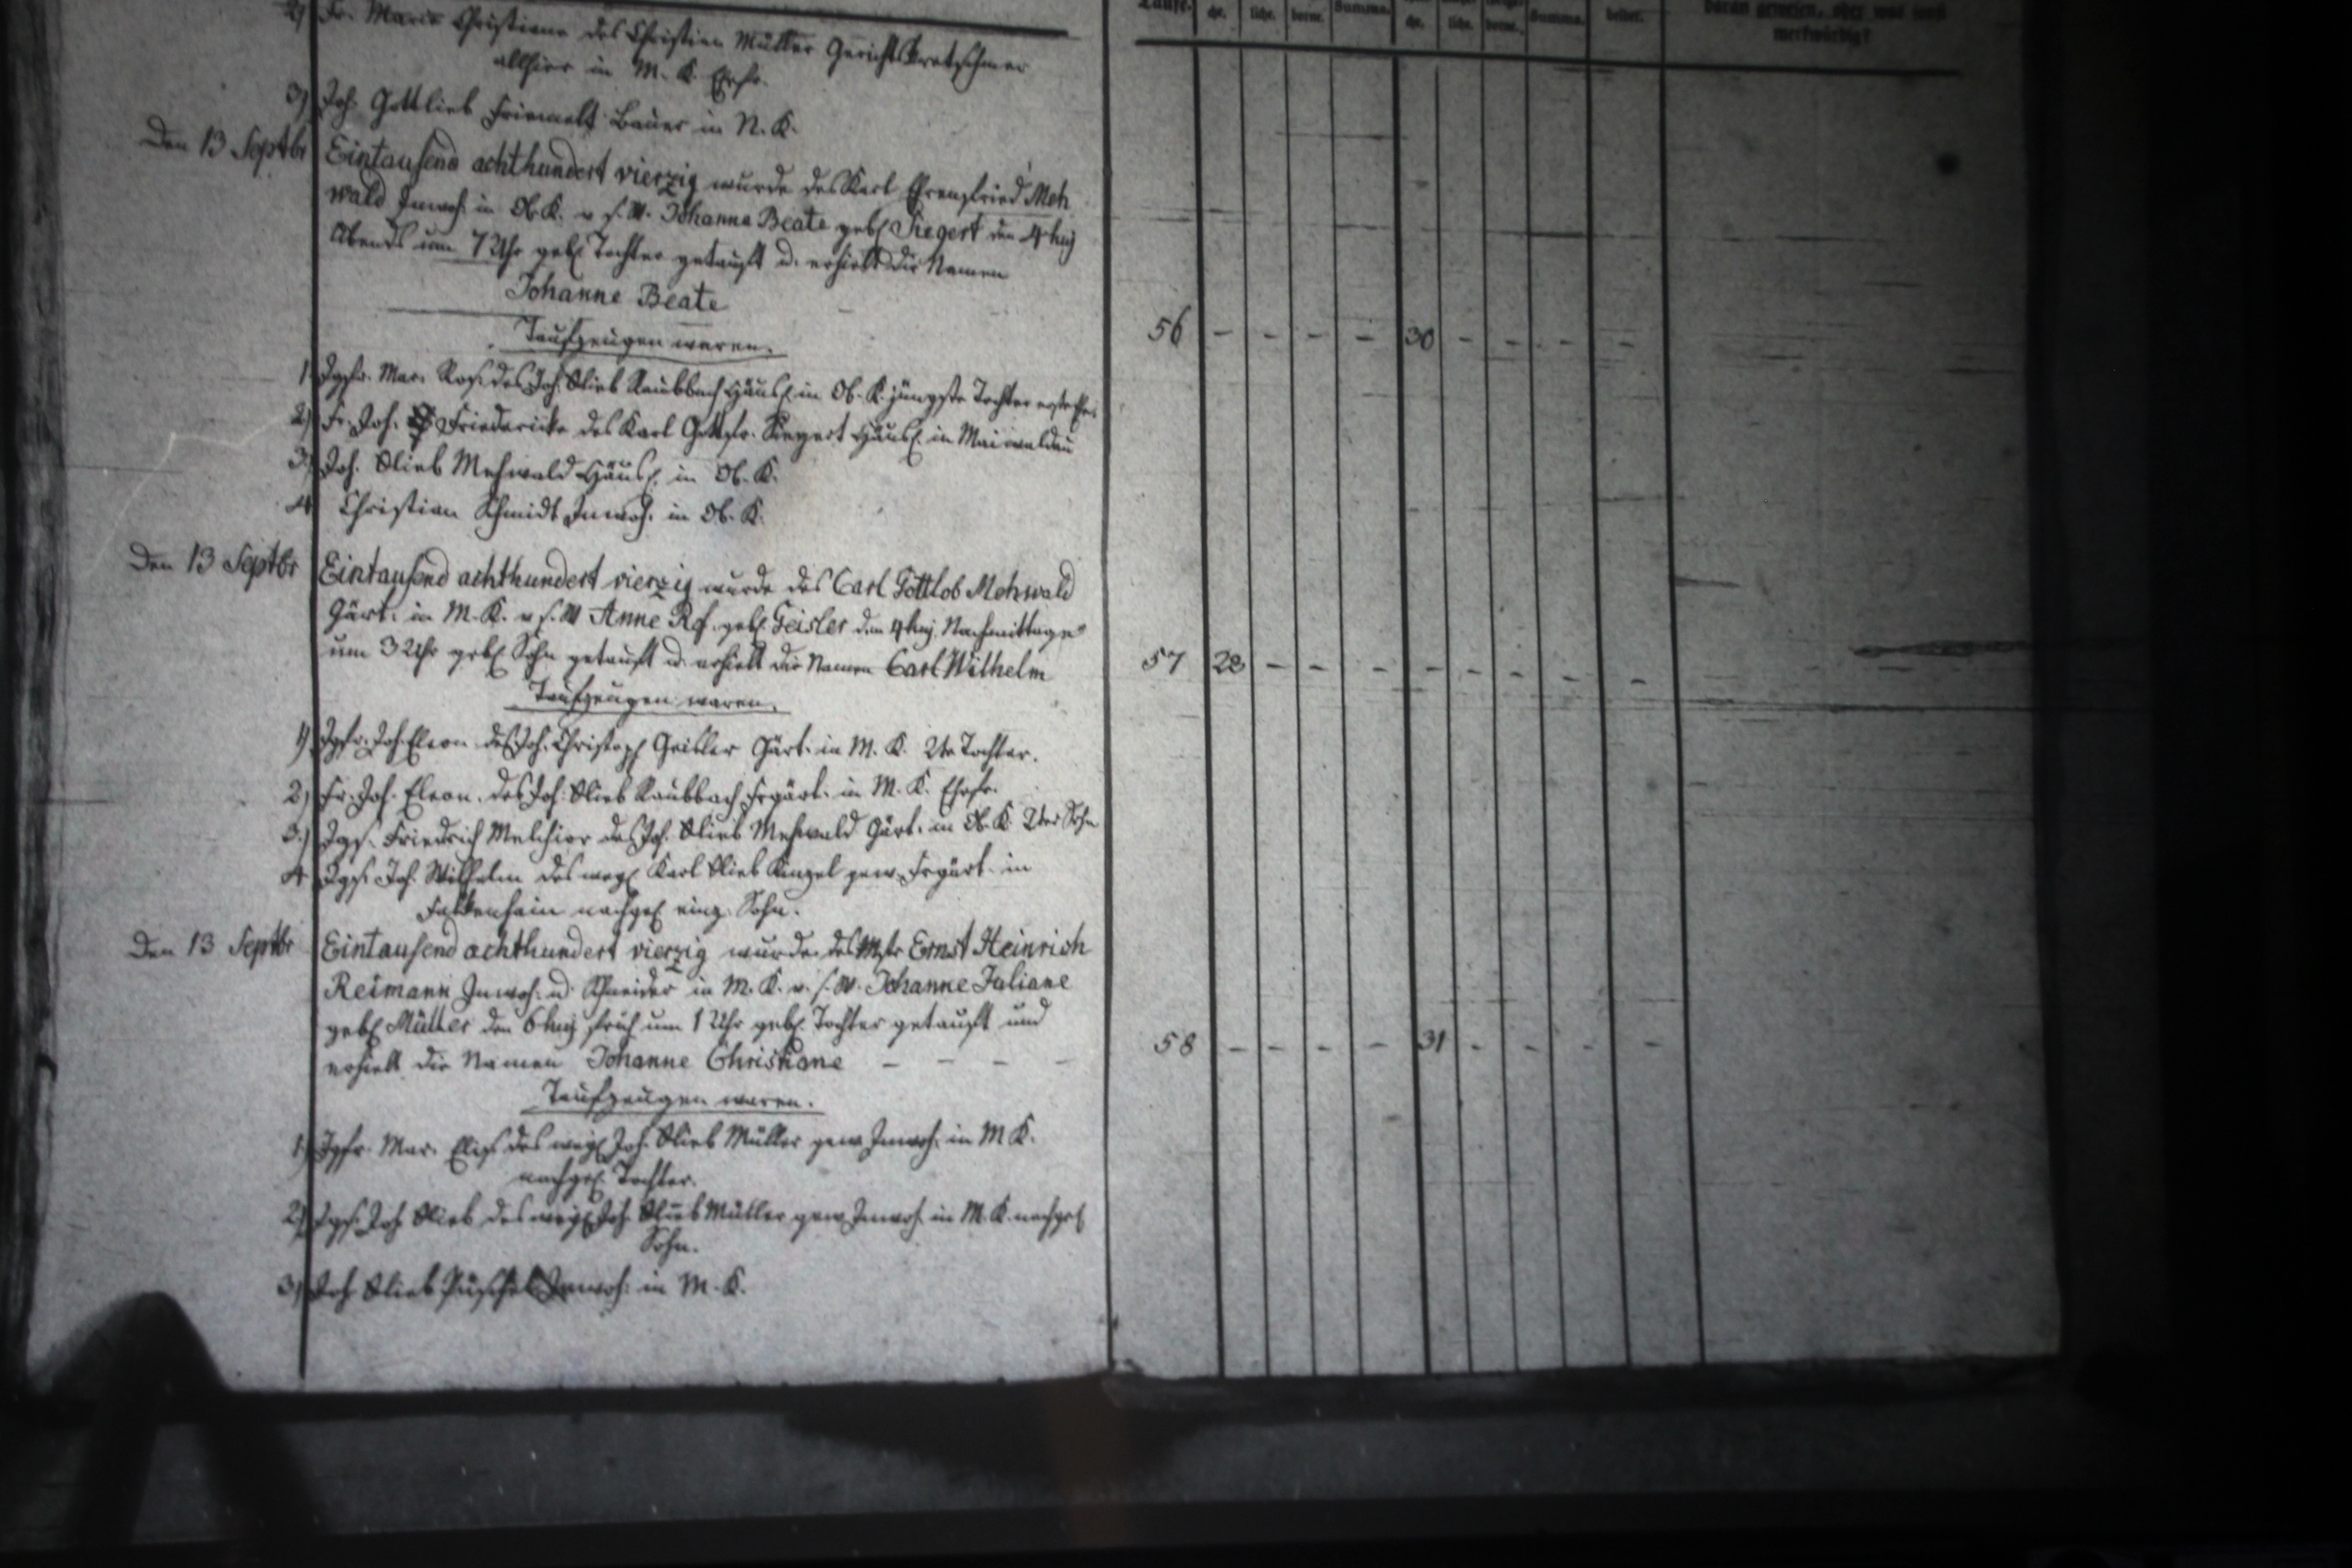 2) Fr. Marie Christiane des Christian Müller Gerichtskretschmer
allhier in M. K. Ehefr.
3) Joh. Gottlieb Friemelt Bauer in N. K.
Den 13 Septbr Eintausend achthundert vierzig wurde des Karl Ehrenfried Meh
wald Inwoh. in Ob. K. v. s. W. Johanna Beate geb. Siegert den 4 huj
Abends um 7 Uhr geb. Tochter getauft u. erhielt die Namen
Johanne Beate
56 - - - - 30 - - - - -
Taufzeugen waren.
1 Jgfr. Mar. Ros. des Joh. Glieb Raubbach Häusl. in Ob. K. jüngste Tochter
2) Fr. Joh. Friedericke des Karl Gottfr. Siegert Häusl. in Maiwaldau
3) Joh. Glieb Mehwald Häusl. in Ob. K.
4 Christian Schmidt Inwoh. in Ob. K.
Den 13 Septbr Eintausend achthundert vierzig wurde des Carl Gottlob Mehwald
Gärt. in M. K. v. s. W Anne Ros. geb. Geisler den 4 huj. Nachmittags
um 3 Uhr geb. Sohn getauft u. erhielt die Namen Carl Wilhelm
57 28 - - - - - - - -
Taufzeugen waren.
1) Jgfr. Joh. Eleon. des Joh. Christoph Geisler Gärt. in M. K. 2te Tochter.
2) Fr. Joh. Eleon. des Joh. Glieb Raubbach Frgärt. in M. K. Ehefr.
3.) Jgs. Friedrich Melchior des Joh. Glieb Mehwald Gärt. in Ob. K. 2ter Sohn
4 Jgs. Joh. Wilhelm des weyl. Karl Glieb Kinzel gew. Frgärt. in
Falkenhain nachgel. einz. Sohn.
Den 13 Septbr Eintausend achthundert vierzig wurde des Mstr Ernst Heinrich
Reimann Inwoh. u. Schneider in M. K. v. s. W. Johanne Juliane
geb. Müller den 6 huj früh um 1 Uhr geb. Tochter getauft und
erhielt die Namen Johanne Christiane - - - -
58 - - - - 31 - - - -
Taufzeugen waren.
1) Jgfr. Mar. Elis. des weyl. Joh. Glieb Müller gew. Inwoh. in M K.
nachgel. Tochter.
2) Jgs. Joh Glieb des weyl. Joh. Glieb Müller gew. Inwoh. in M. K. nachgel
Sohn.
3) Joh Glieb Püschel Inwoh. in M. K.